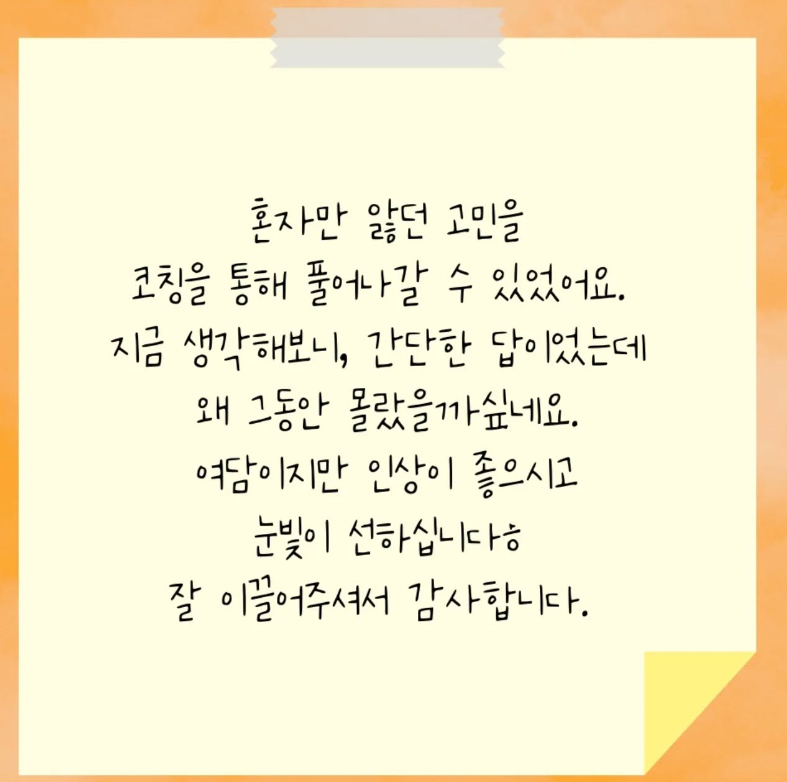 혼자만 앓던 고민을
코칭을 통해 풀어나갈 수 있었어요.
지금 생각해보니, 간단한 답이었는데
왜 그동안 몰랐을까싶네요.
여담이지만 인상이 좋으시고
눈빛이 선하십니다ㅎ
잘 이끌어주셔서 감사합니다.